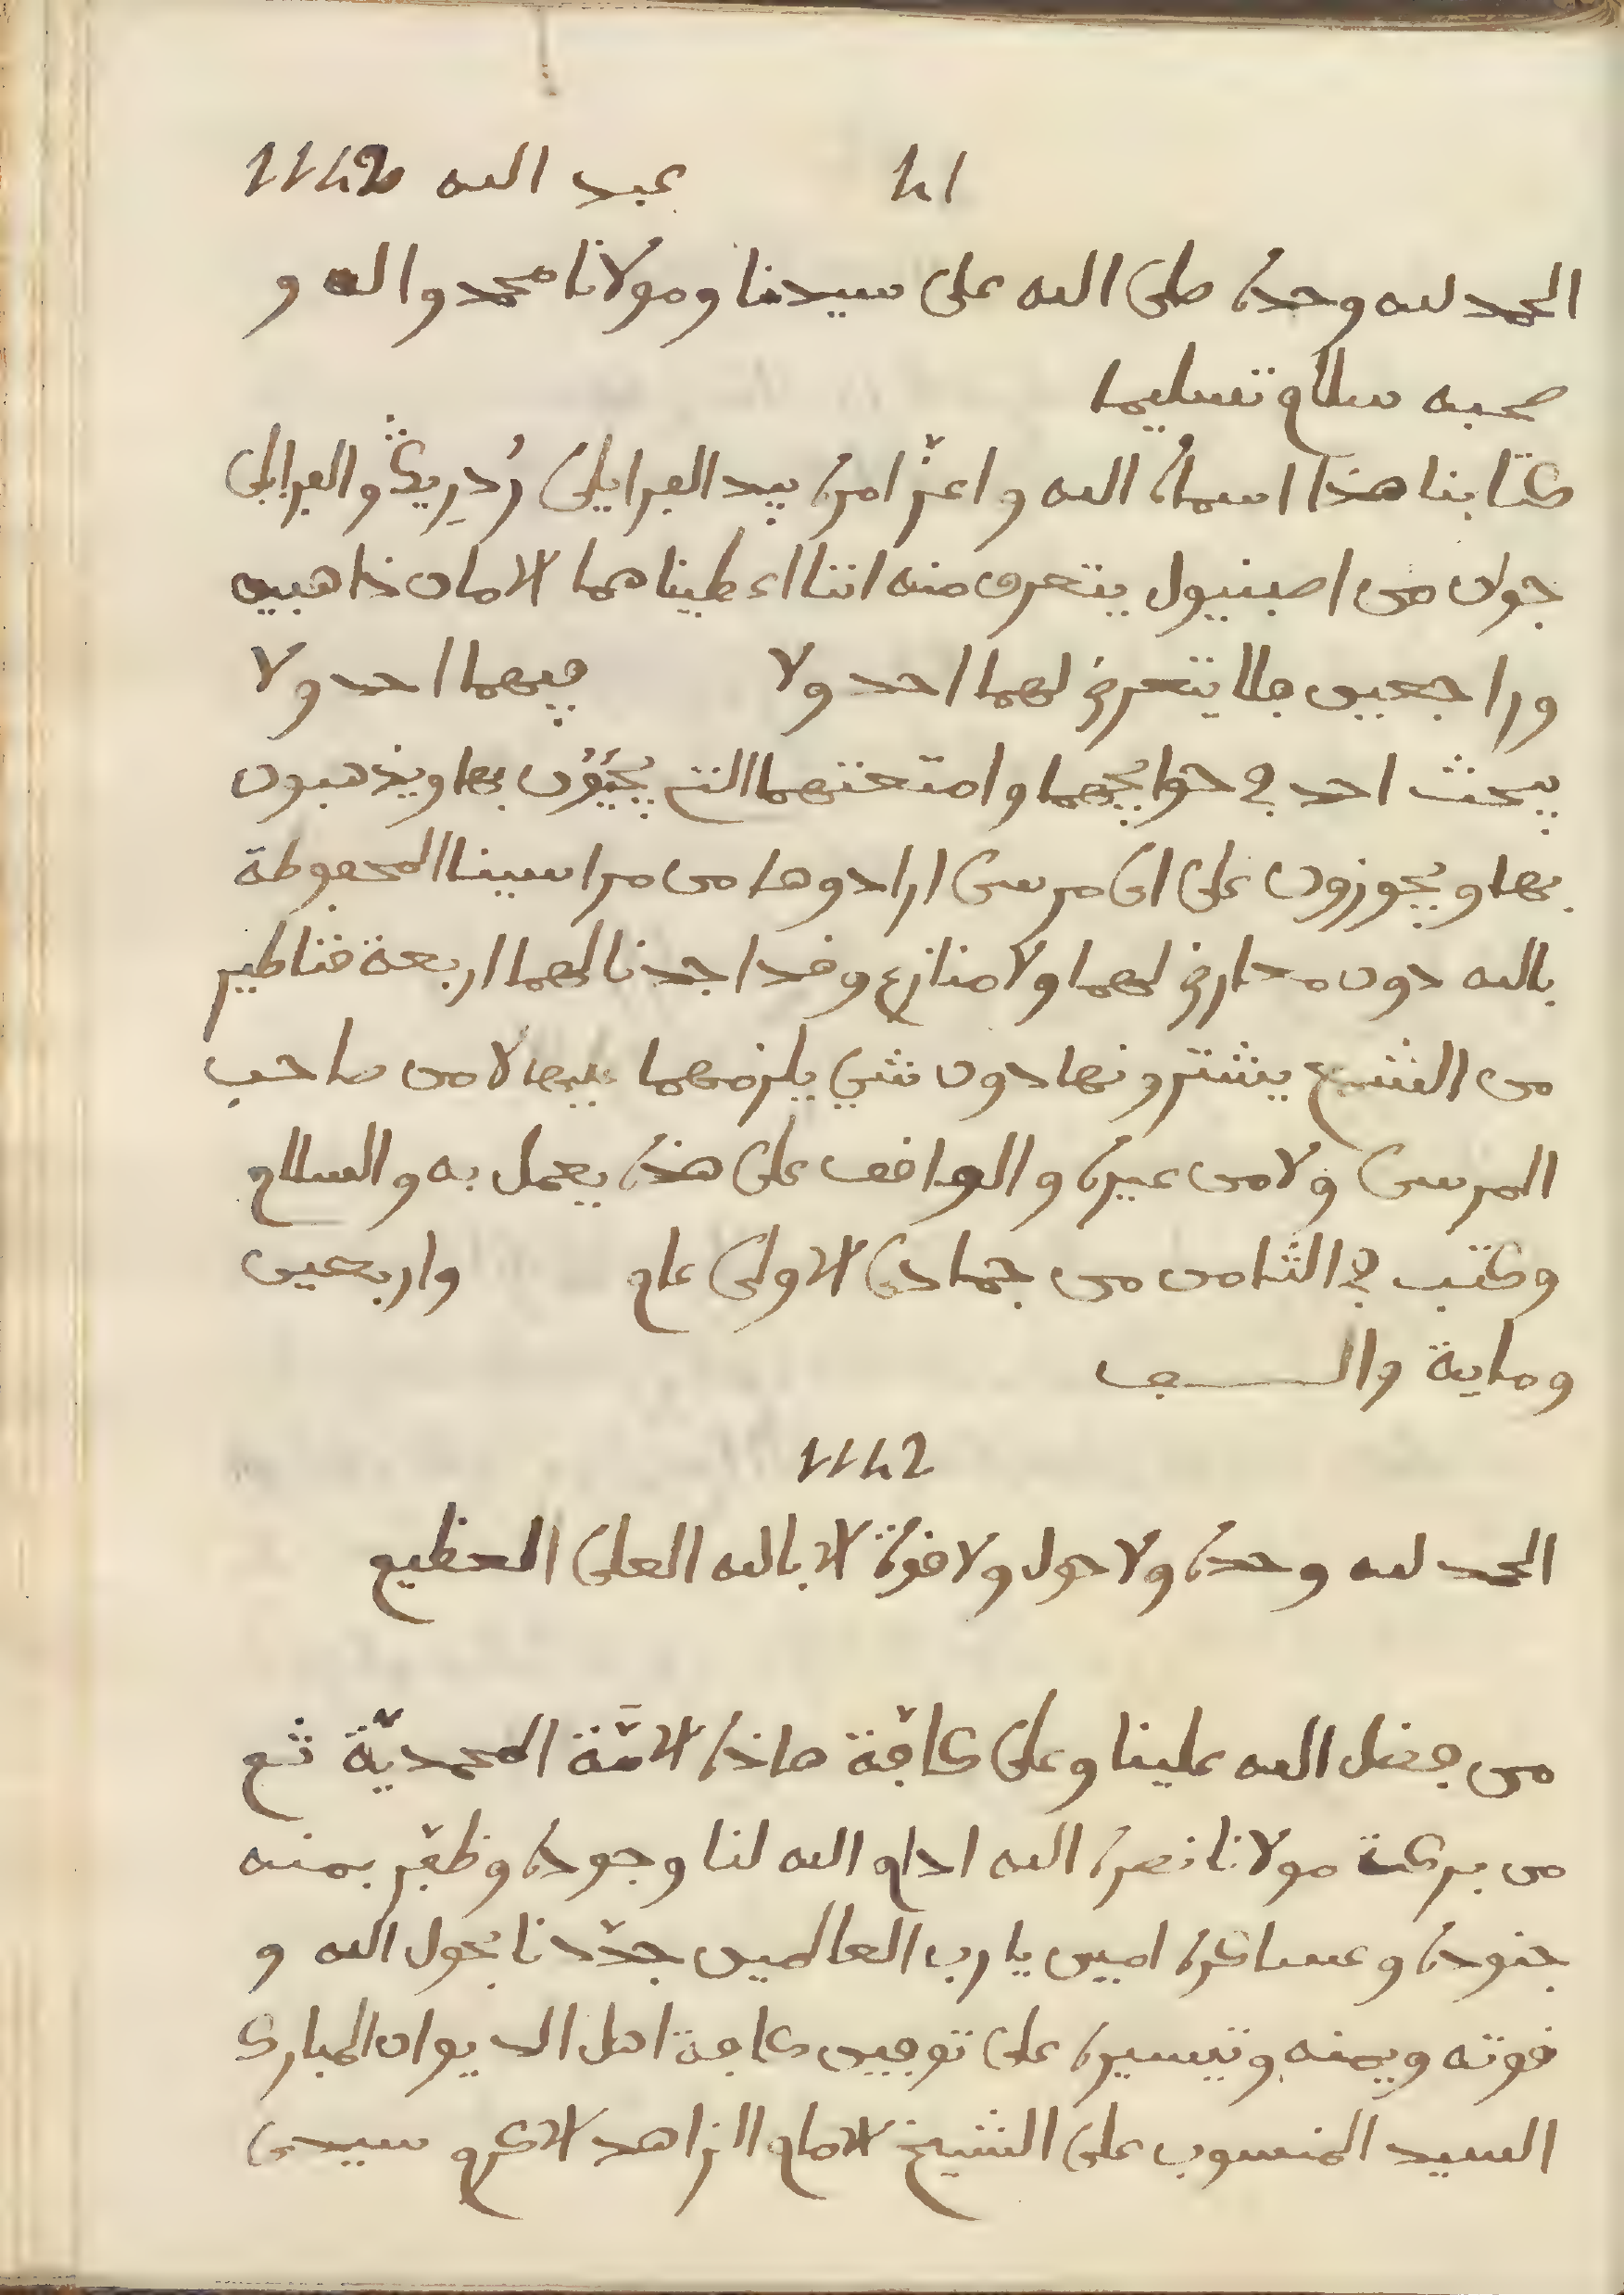 41 عبد الله 1142
الحمد لله وحده صلى الله على سيدنا ومولانا محمد واله و
صحبه سلام تسليما
كتابنا هذا اسماه الله واعزّ امره بيد الفرايلى رُدرِيكُ والفرايلى
جوان من اصبنيول يتعرف منه اننا اعطيناهما الامان ذاهبين
وراجعين فلا يتعرض لهما احد ولا فيهما احد ولا
يبحث احد في حوايجهما وامتعتهما التي يُجيَؤُن بها ويذهبون
بها ويجوزون على اى مرسى ارادوها من مراسينا المحفوظة
بالله دون معارض لهما ولا منازع وقد اجدنا لهما اربعة قناطير
من الشمع يشترونها دون شيء يلزمهما فيها لا من صاحب
المرسى ولا من غيره والواقف على هذه يعمل به والسلام
وكتب في الثامن من جمادى الاولى عام واربعين
وماية والف
1142
الحمد لله وحده ولا حول ولا قوة الا بالله العلى العظيم
من فضل الله علينا وعلى كافّة هاذه الامّة المحمديّة ثم
من بركة مولانا نصره الله ادام الله لنا وجوده وظفّر بمنه
جنوده وعساكره امين يا رب العالمين جدّدنا بحول الله و
قوته ويمنه وتيسيره على توفيق كافة اهل الديوان المبارك
السيد المنسوب على الشيخ الامام الزاهد الاكرم سيدى